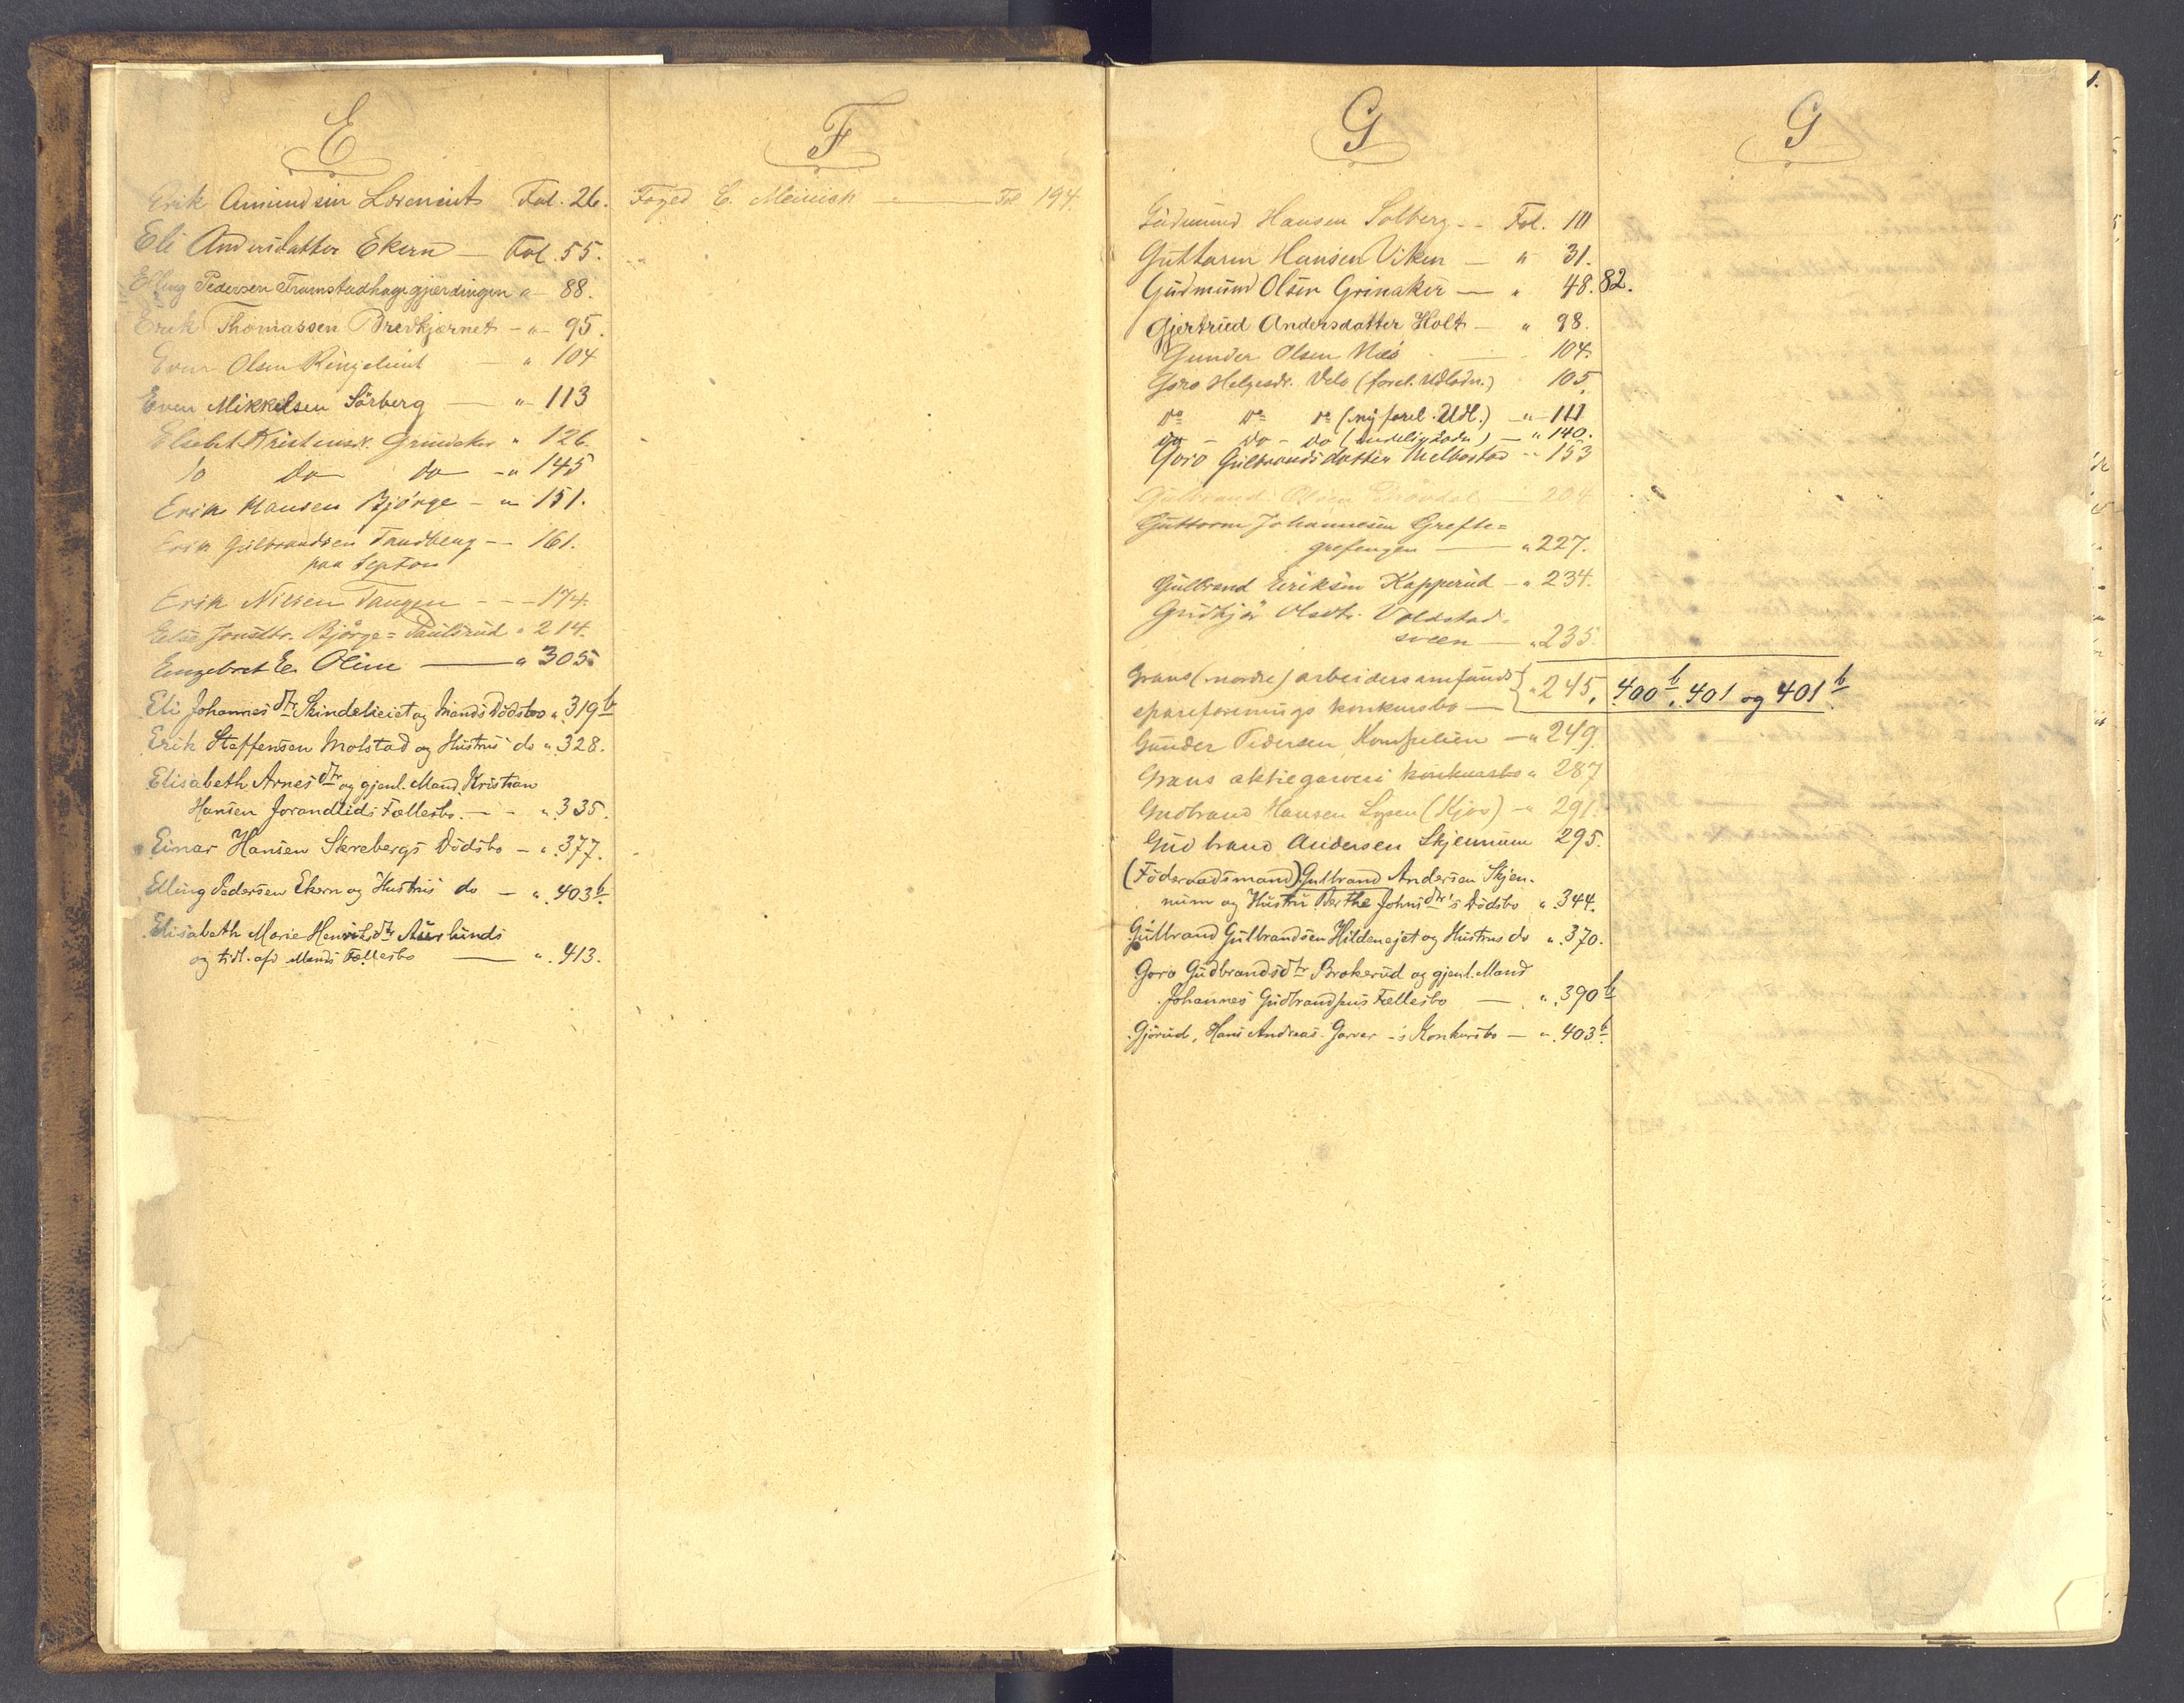 E
Erik Amundsen Lorenuts Fol. 26.
Eli Andersdatter Ekern — Fol. 55.
Elling Pedersen Framstadhagegjærdingen " 88.
Erik Thomassen Bredkjærnet - " - 95.
Even Olsen Ringelund — " 104
Even Mikkelsen Sörberg — " 113
Elsebet Kristensdr. Grinaker " 126.
do do do - " 145
Erik Hansen Bjørge - " 151.
Erik Gulbrandsen Tandberg - - 161.
paa Lepton
Erik Nilsen Tangen - - - 174.
Eelie Jonsdtr. Bjørge = Paulsrud " 214.
Engebret E. Olim — " 305
Eli Johannesdtr Skindelieiet og Mands Dödsbo " 319b
Erik Steffensen Molstad og Hustrus do " 328.
Elisabeth Arnesdtr og gjenl. Mand Kristian
Hansen Jorandlids Fællesbo. - - " 335.
Einar Hansen Skrebergs Dödsbo - " 377.
Elling Pedersen Ekern og Hustrus do — " 403b
Elisabeth Marie Henriksdtr Aurlunds
og tidl. afd Mands Fællesbo — " 413.
F
Foged C. Meinich — Fol 194.
G
Gudmund Hansen Solberg - - Fol. 111
Guttorm Hansen Viken — " 31.
Gudmund Olsen Grinaker — " 48. 82.
Gjertrud Andersdatter Holt — " 98.
Gunder Olsen Næs — 104.
Goro Helgesdr. Velo (forel. Udlodn.) 105.
do do do (ny forel. Udl.) - " 111
do - do - do (endelig Lodn) — " 140.
Goro Gulbrandsdatter Melbostad - - 153
Gulbrand Olsen 204
Guttorm Johannesen Grefte=
grefengen — " 227.
Gulbrand Eriksen Kapperud — " 234.
Gudbjør Olsdtr. Voldstad=
sveen — " 235.
Grans (nordre) arbeidersamfunds
spareforenings konkursbo — " 245, 400b, 401 og 401b
Gunder Pedersen Komperlien — " 249.
Grans aktiegarveri konkursbo " 287
Gudbrand Hansen Lysen (Kjos) - " 291.
Gudbrand Andersen Skjennum 295.
(Föderaadsmand) Gulbrand Andersen Skjen-
num og Hustru Berthe Johnsdtr's Dödsbo " 344.
Gulbrand Gulbrandsen Hildenejet og Hustrus do " 370.
Goro Gudbrandsdtr Brokerud og gjenl. Mand
Johannes Gudbrandsens Fællesbo — " 390b
Gjörud, Hans Andreas Garver -'s Konkursbo — " 403b
G